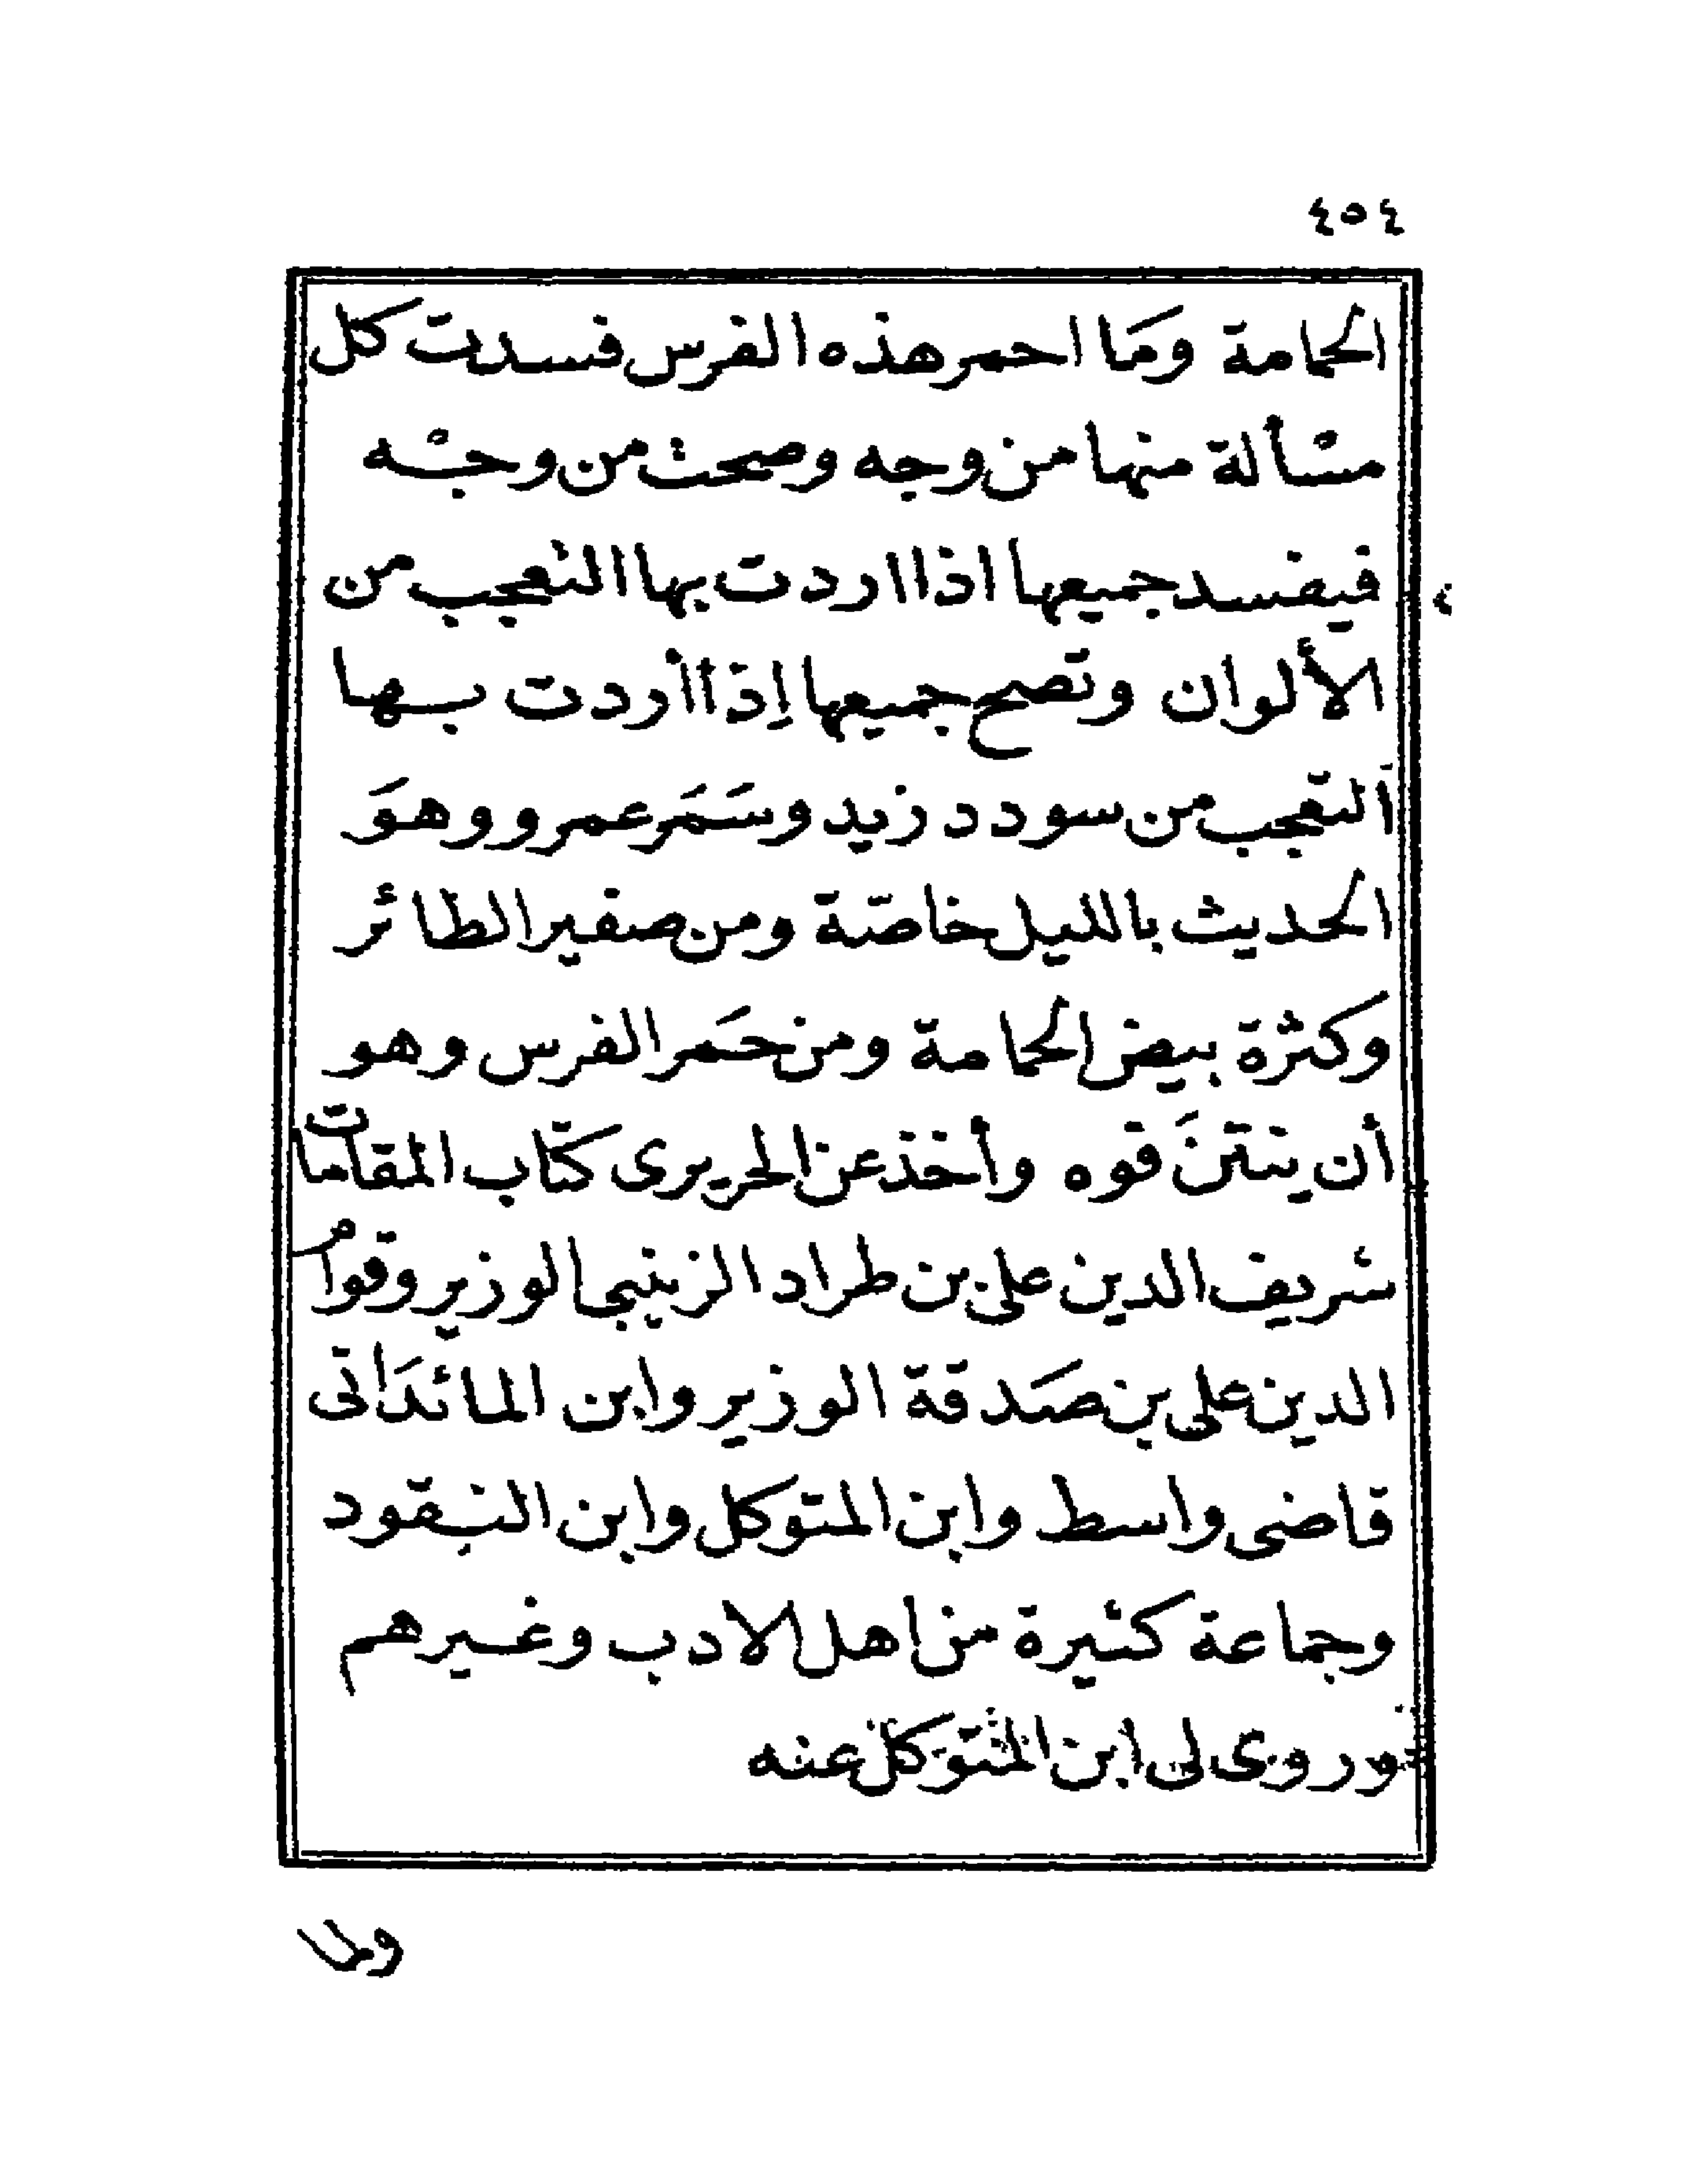 ٤٥٤
الحمامة ومَا احمر هذه الفرس فسدت كل
مسْألة منها من وجه وصحت من وجْه
فيفسد جميعها اذا اردت بها التعجب من
الألوان وتصح جميعها إذا أردت بها
التعجب من سودد زيد وسَمَر عمرو وهوَ
الحديث بالليل خاصّة ومن صفير الطائر
وكثرة بيض الحمامة ومن حَمَر الفرس وهو
أن ينتنَ فوه وأخذ عن الحريرى كتاب المقامات
شريف الدين على بن طراد الزينبى الوزير وقوام
الدين على بن صَدقة الوزير وابن المائدَائى
قاضى واسط وابن المتوكل وابن النقود
وجماعة كثيرة من اهل الادب وغيرهم
وروى لى ابن المتوكل عنه
ولما